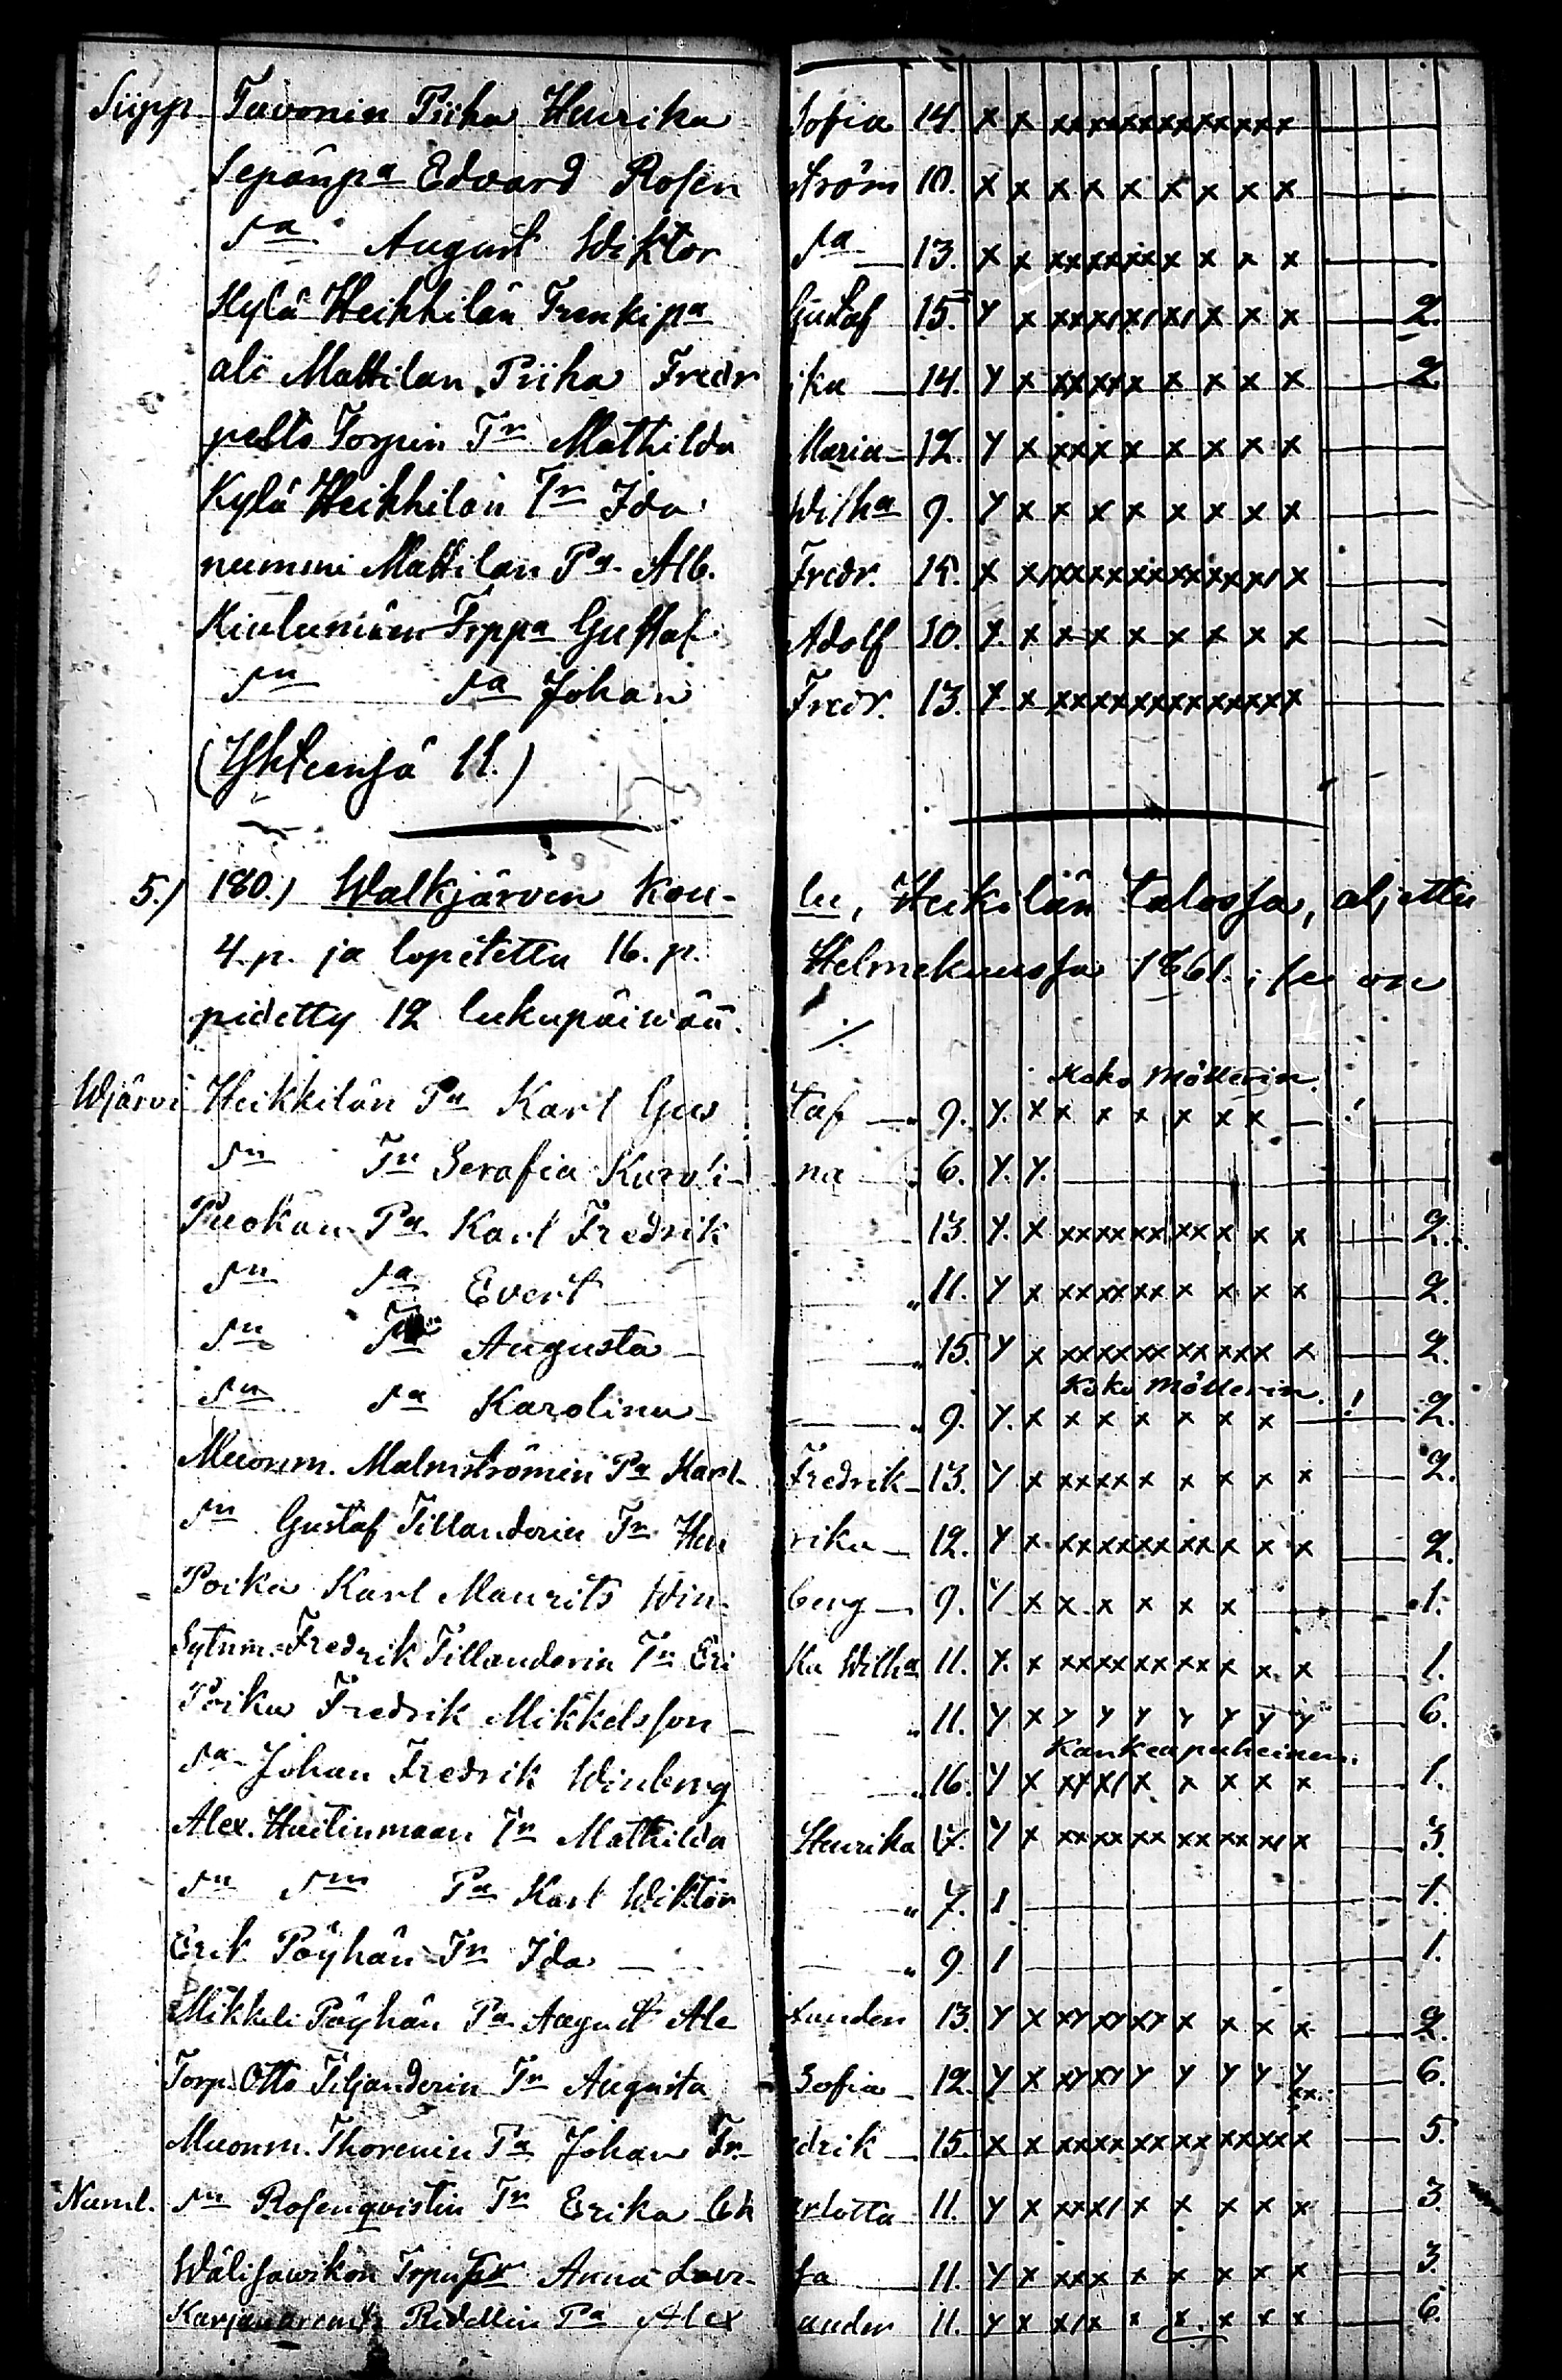 Siipp. Tavonin Piika Henrika Sofia 14. x x xx xx xx xx xx xx xx
Sepänpa Edvard Rosenström 10. x x x x x x x x x
sa August Wiktor sa 13. x x xx xx xx x x x x
Kylä Heikkilän Trenkipa Gustaf 15. y x x x x 2.
ali Mattilan Piika Fredrika 14. y x xx xx x x x x x 2
pelto Torpin Tr Mathilda Maria 12. y x xx x x x x x x
Kylä Heikkilän Tr Ida Wilha 9. y x x x x x x x x
nummi Mattilan Pa Alb. Fredr. 15. x
Kiulumäen Trppa Gustaf Adolf 10. y. x x x x x x x x
sn sa Johan Fredr. 13. y x xx xx xx xx xx xx xx
(Yhteensä 11.)
5.) 180.) Walkjärven koulu, Heikilän talossa, aljettu
4. p. ja lopetettu 16. p. Helmekuussa 1861. ; se on
pidetty 12 lukupäiwää. ./.
Koko Möllerin.
Wjärvi Heikkilän Pa Karl Gustaf 9. y. x x x x x x x !
sn Tr Serafia Karolina 6. y. y.
Puokan Pa Karl Fredrik 13. y. x xx xx xx xx x x x 2.
sn sa Evert " 11. y x xx xx xx x x x x 2.
sn Tr Augusta " 15. y x xx xx xx xx xx x x 2.
Koko Möllerin.
sn sa Karolina " 9. y. x x x x x x x ! 2.
Muonm. Malmströmin Pa Karl Fredrik 13. y x xx xx x x x x x 2.
sn Gustaf Tillanderin Tr Henrika 12. y x xx xx xx xx x x x 2.
Poika Karl Maurits Winberg 9. y x x x x x x 1.
Sytnm. Fredrik Tillanderin Tr Erika Wilha 11. y. x xx xx xx xx x x x 1.
Poika Fredrik Mikkelsson " 11. y x y y y y y y y 6.
Kankeapuheinen.
sa Johan Fredrik Winberg " 16. y x x x x x x 1.
Alex. Huitinmaan Tr Mathilda Henrika y x xx xx xx xx xx x 3.
sn sm Pa Karl Wiktor " 7. 1 1.
Erik Pöyhän Tr Ida " 9. 1 1.
Mikkeli Pöyhän Pa August Alexander 13. y x xy xy xy x x x x 2.
Torp. Otto Tiljanderin Tr Augusta Sofia 12. y x xy xy y y y y y 6.
Muonm. Thorenin Pa Johan Fredrik 15. x x xx xx xx xx xx xx x 5.
Numl. sn Rosenqvistin Tr Erika Charlotta 11. y x x x x x x x 3.
Wälisawikon Anna Lovisa 11. y x xx x x x x x x 3.
Ridellin Pa Alexander 11. y x x x x x x x 6.